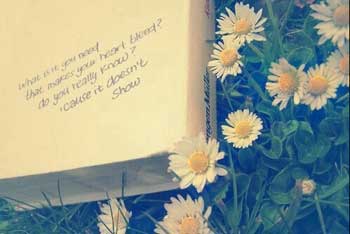 what is it you need
that makes your heart bleed?
do you really know?
'cause it doesn't
show